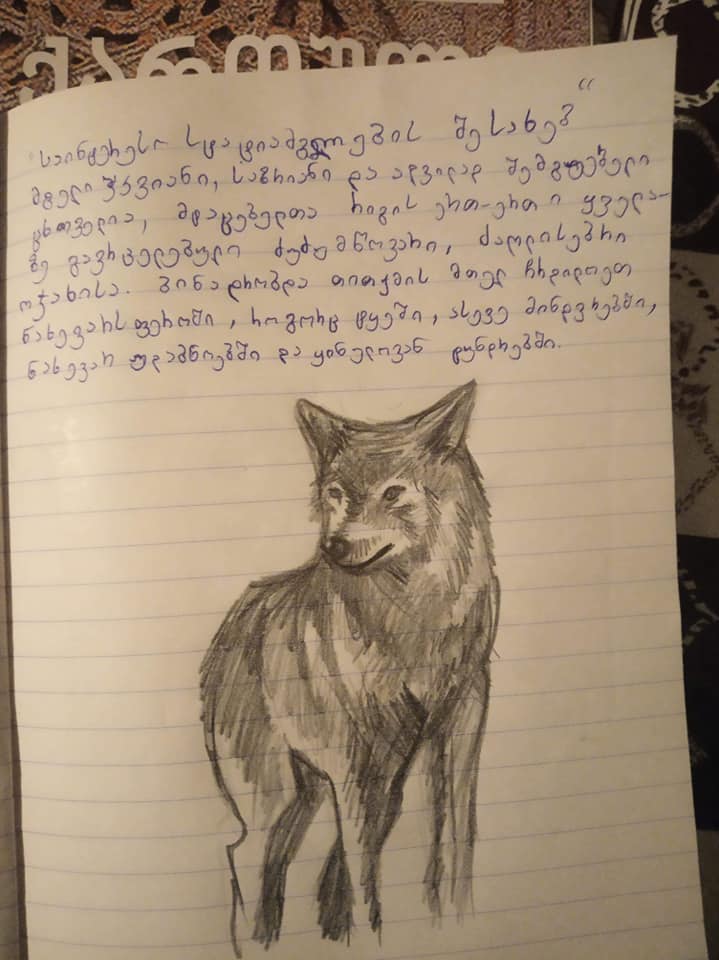 ქართული
"საინტერესო სტატია მგლების შესახებ"
მგელი ჭკვიანი, საზრიანი და ადვილად შემგუებელი
ცხოველია, მტაცებელთა რიგის ერთ-ერთი ყველა-
ზე გავრცელებული ძუძუმწოვარი, ძაღლისებრი
ოჯახისა. ბინადრობდა თითქმის მთელ ჩრდილოეთ
ნახევარსფეროში, როგორც ტყეში, ასევე მინდვრებში,
ნახევარ უდაბნოებში და ყინულოვან ტუნდრებში.